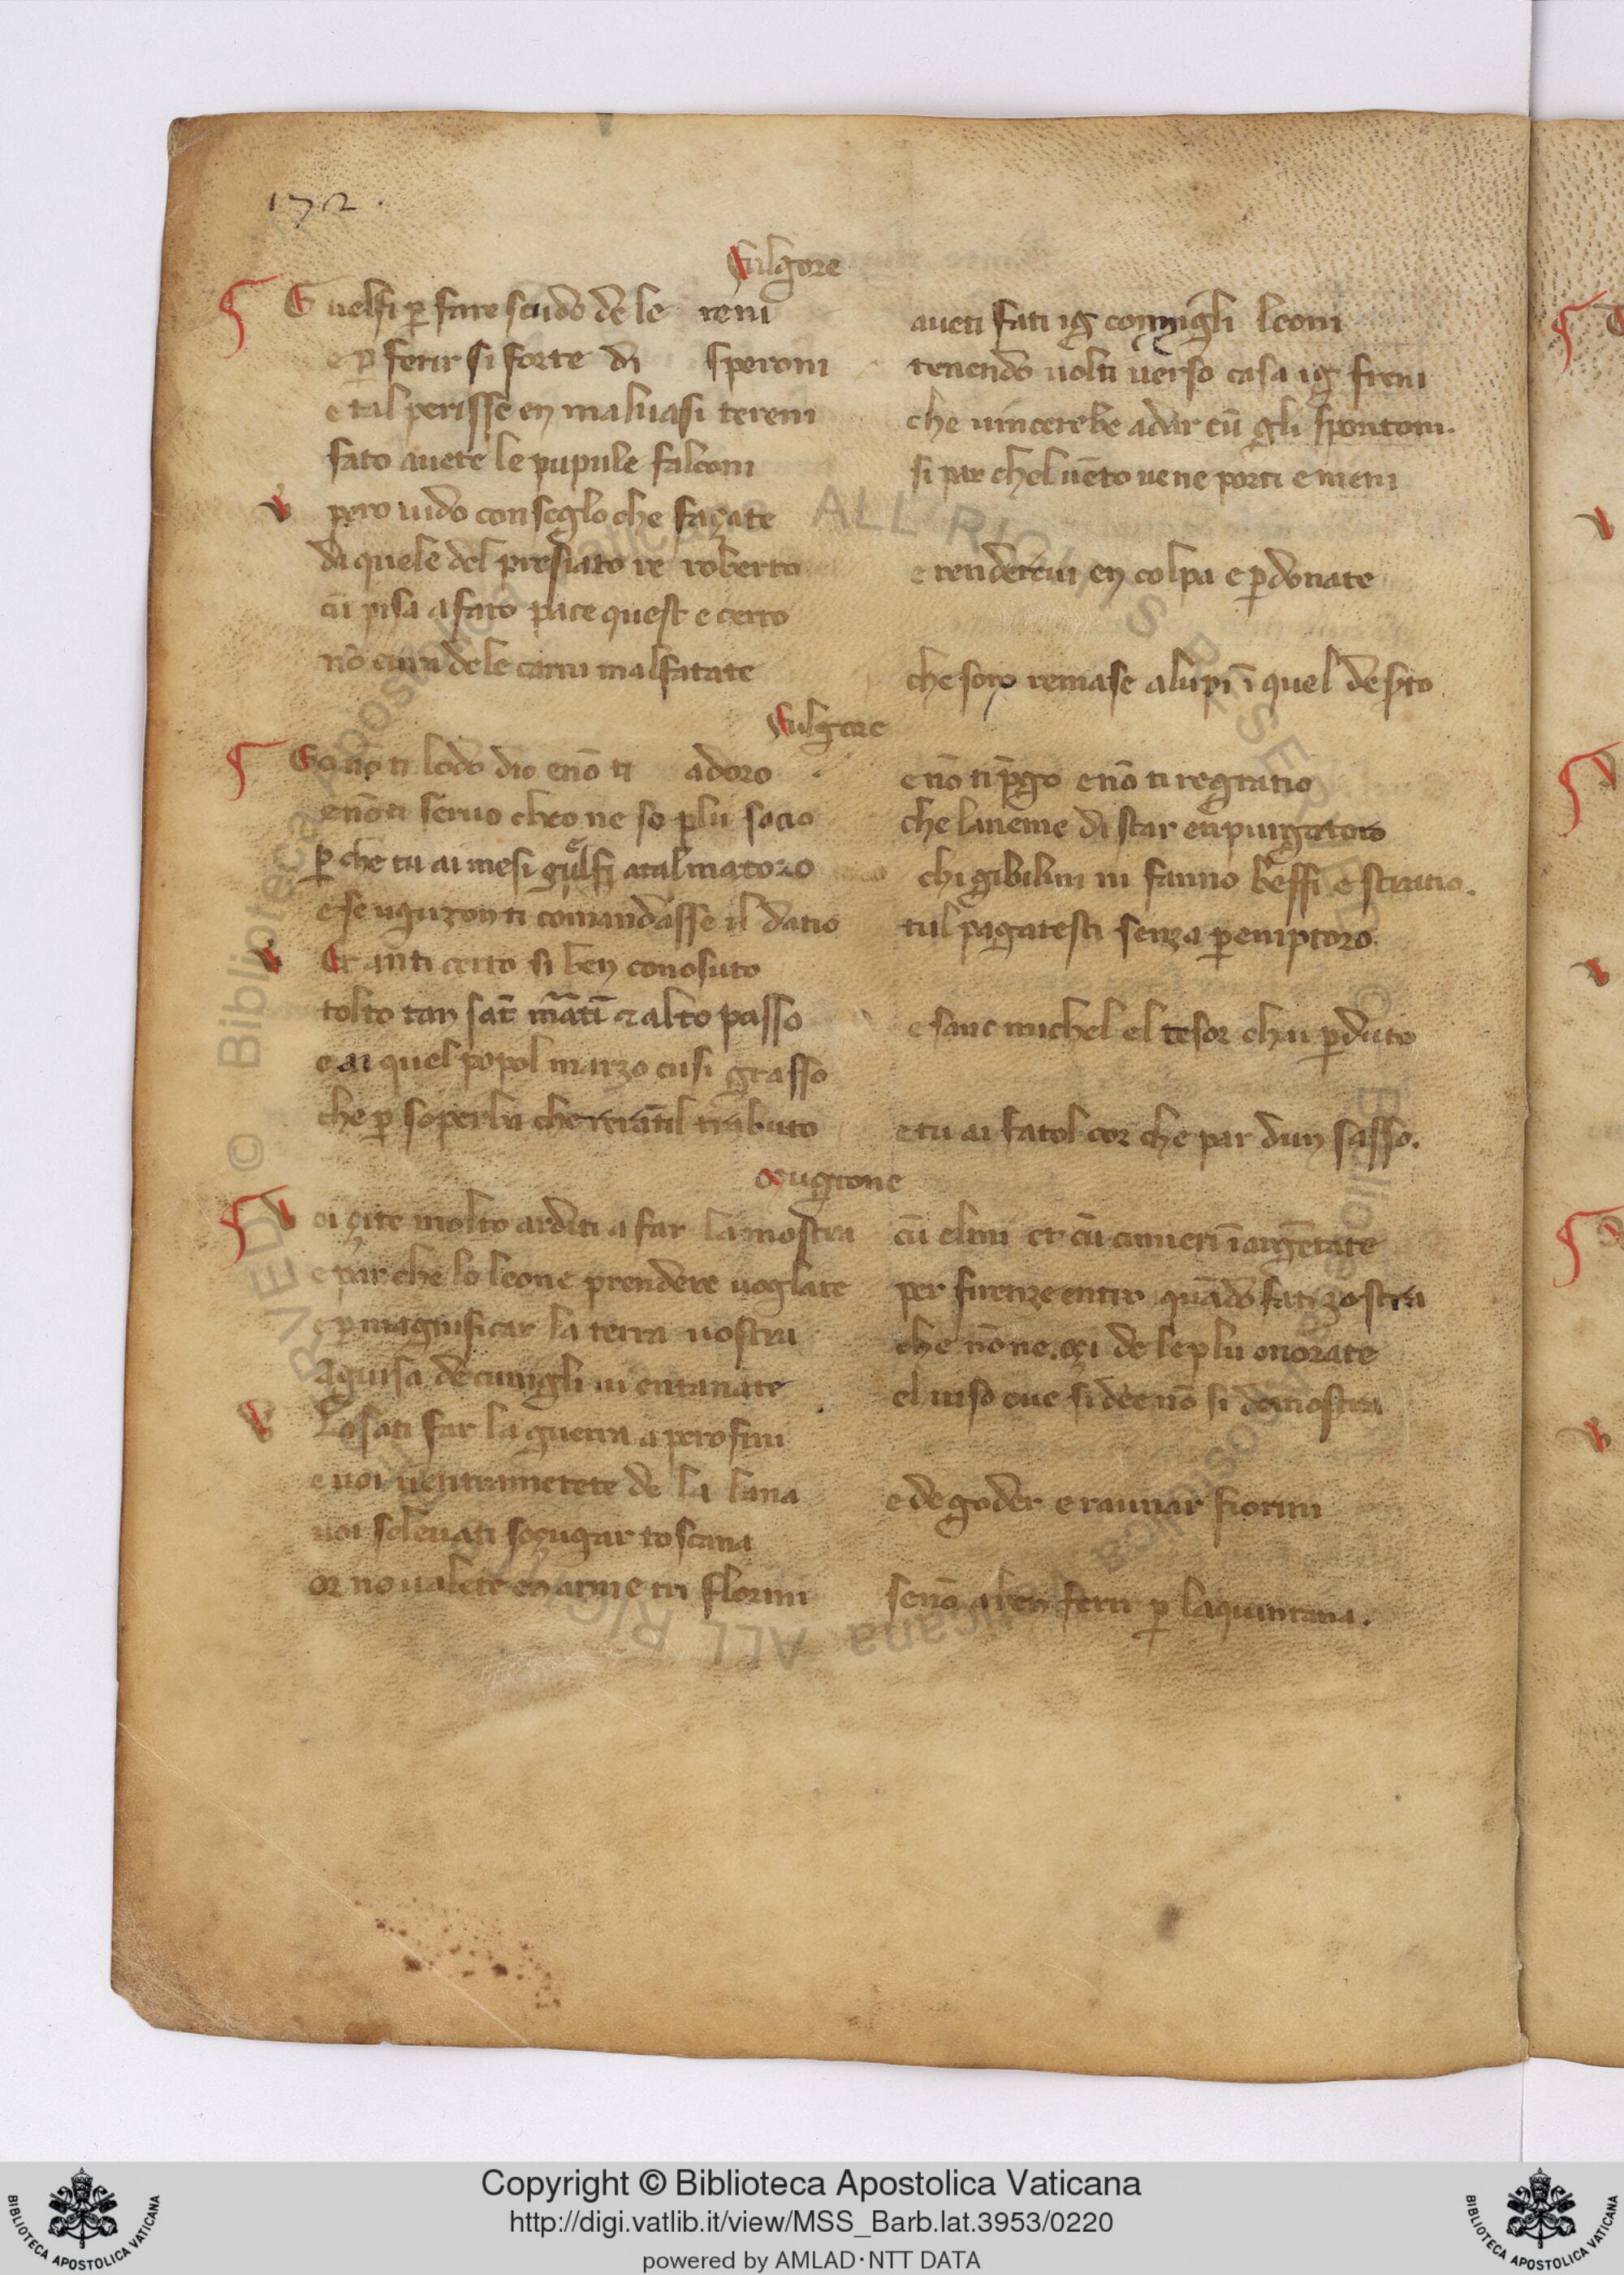 172.
Fulgore
Guelfi ꝑ fare scudo de le reni aueti fati ig conigli leoni
e ꝑ ferir si forte di speroni tenendo uolti uerso casa ig freni
e tal perisse en maluasi tereni che uincerebe a dar cū gli spontoni.
fato auete le pupule falconi si par chel uēto ue ne porti e meni
pero ui do conseglo che façate
di quele del presiato re roberto e rendereui en colpa e ꝑdonate
cū pisa a fato pace quest e certo
nō cura de le carni malfatate che son remase a lupi ī quel deserto
Fulgore
Eo nō ti lodo dio e nō ti adoro e nō ti p̄go e nō ti regratio
e nō ti seruo cheo ne so plu sacio che laneme di star en purgatoro
ꝑ che tu ai mesi guelfi a tal matoro chi gibilini ni fanno beffi e stratio.
e se uguzon ti comandasse il datio tul pagaresti senza ꝑemptoro.
Et anti certo si ben conosuto
tolto tan sāt mātī ⁊ altopasso e sanc michel el tesor chai ꝑduto
e ai quel popol marzo cusi grasso
che ꝑ soperbia tributo e tu ai fatol cor che par dun sasso.
Voi gite molto arditi a far la mostra cū elmi et cū cimeri īargētate
e par che lo leone prendere uoglate per firenze entro quādo fati zostra
e ꝑ magnificar la terra uostra che nō ne de le plu onorate
A guisa de cunigli ui entanate el uiso oue si dee nō si demostra
Lasati far la guerra a perosini
e voi uentrametete de la lana e de goder e raunar fiorini
voi soleuati soçugar toscana
or no ualete en arme tri florini senō a ben ferir ꝑ la quintana.
Copyright © Biblioteca Apostolica Vaticana
http://digi.vatlib.it/view/MSS_Barb.lat.3953/0220
powered by AMLAD·NTT DATA
BIBLIOTECA APOSTOLICA VATICANA
BIBLIOTECA APOSTOLICA VATICANA